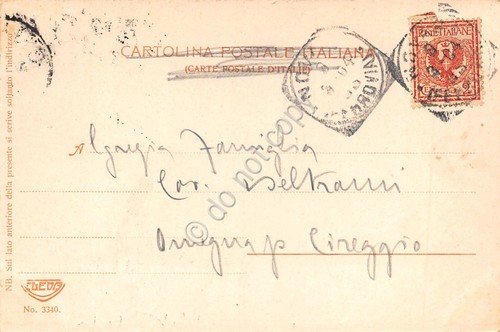 CARTOLINA POSTALE ITALIANA
(CARTE POSTALE D'ITALIE)
POSTE ITALIANE
A Egregia Famiglia
Cav. Beltrami
Omegna p Cireggio
NB. Sul lato anteriore della presente si scrive soltanto l'indirizzo.
No. 3340.
© do not copy